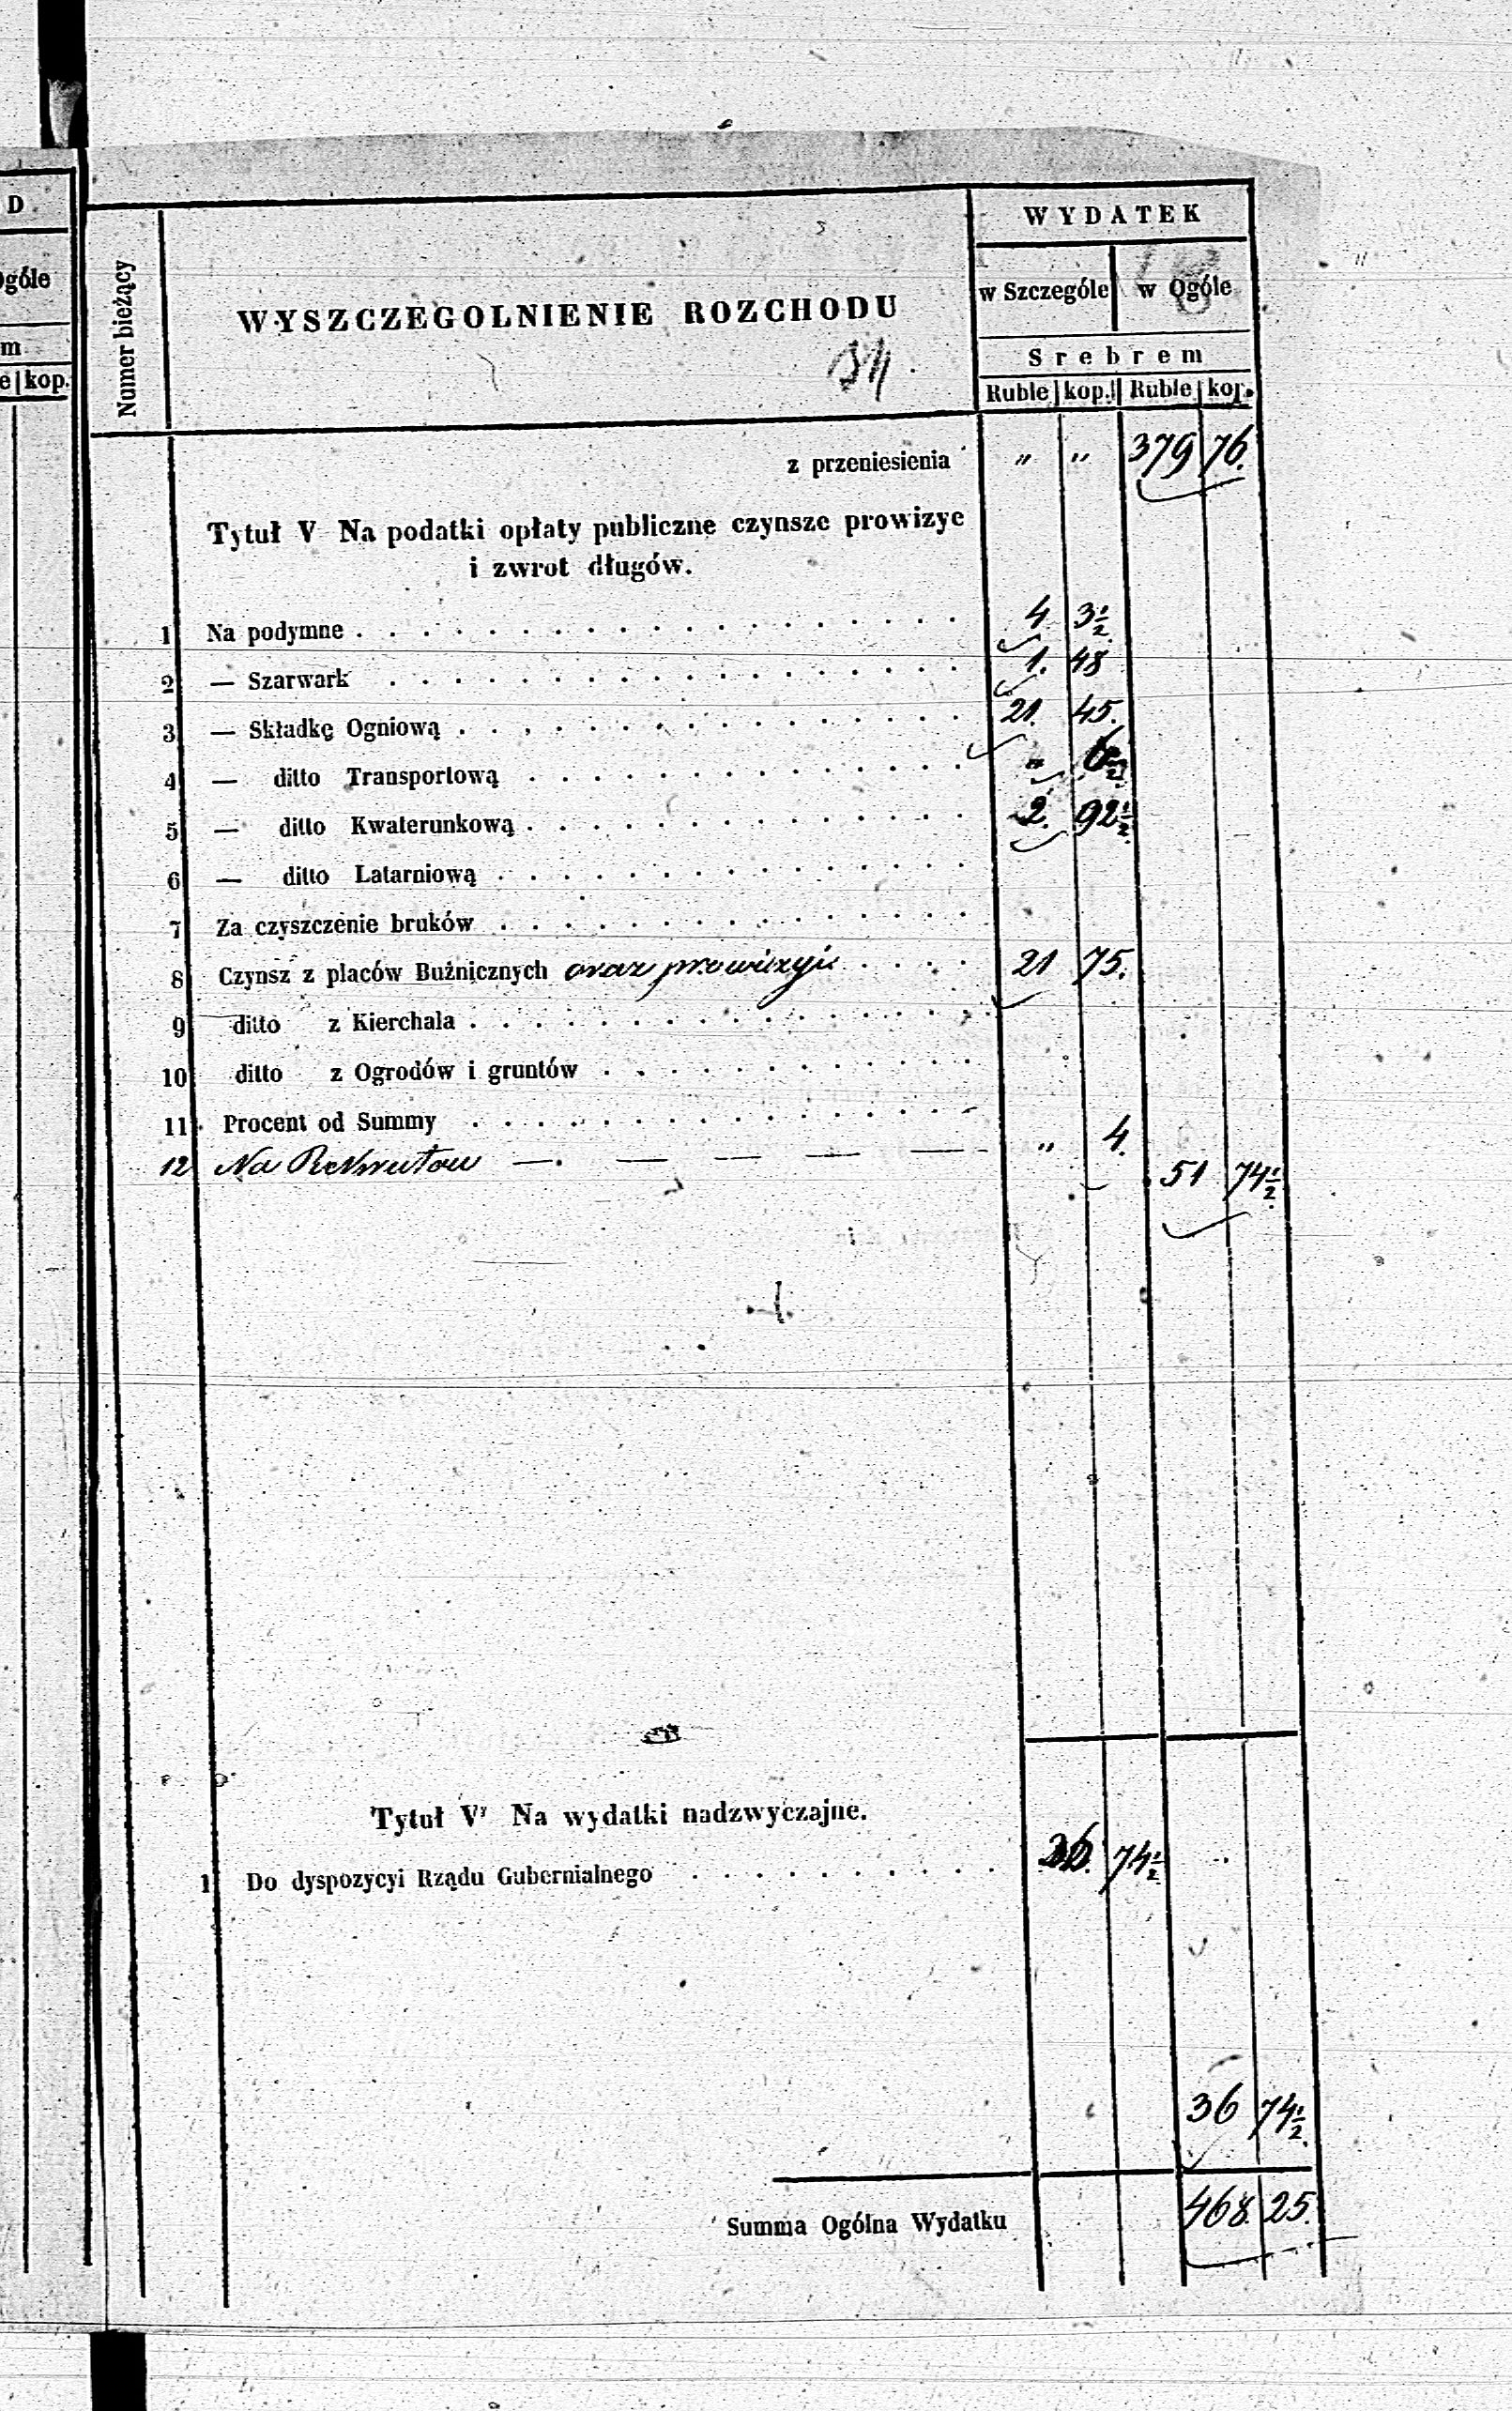 D
Ogóle
m
e kop.
Numer bieżący
WYSZCZEGOLNIENIE ROZCHODU
WYDATEK
w Szczególe w Ogóle
Srebrem
Ruble kop. Ruble kop.
z przeniesienia „ „ 379 76.
Tytuł V Na podatki opłaty publiczne czynsze prowizye
i zwrot długów.
1 Na podymne . . . . 4 3½
2 — Szarwark . . . . 1. 48
3 — Składkę Ogniową . . . . 21. 45.
4 — ditto Transportową . . . . „ 6½
5 — ditto Kwaterunkową . . . . 2. 92½
6 — ditto Latarniową . . . .
7 Za czyszczenie bruków . . . .
8 Czynsz z placów Bużnicznych oraz prowizyii . . . . 21 75.
9 ditto z Kierchala . . . .
10 ditto z Ogrodów i gruntów . . . .
11 Procent od Summy . . . .
12 Na Rekrutow — — — — — „ 4.
51 74½
Tytuł VI Na wydatki nadzwyczajne.
1 Do dyspozycyi Rządu Gubernialnego . . . . 36. 74½
36 74½
Summa Ogólna Wydatku 468. 25.